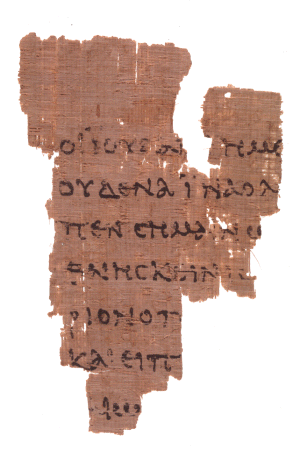 ΟΙ ΙΟΥΔΑΙ ΗΜΕ
ΟΥΔΕΝΑ ΙΝΑ Ο Λ
ΠΕΝ ϹΗΜΑΙΝω
ΘΝΗϹΚΕΙΝ
ΡΙΟΝ Ο Π
ΚΑΙ ΕΙΠ